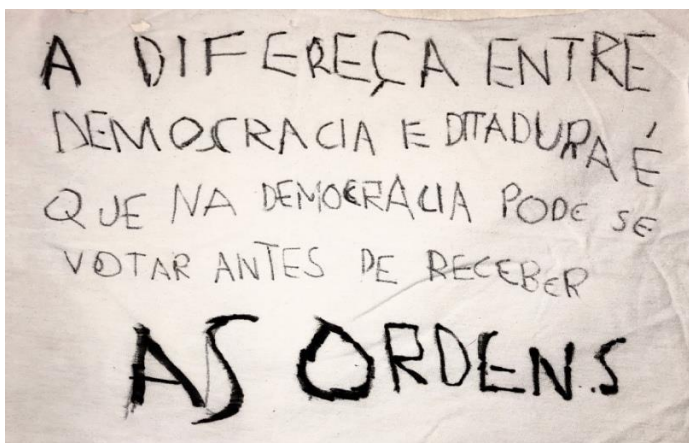 A DIFEREÇA ENTRE
DEMOCRACIA E DITADURA É
QUE NA DEMOCRACIA PODE SE
VOTAR ANTES DE RECEBER
AS ORDENS